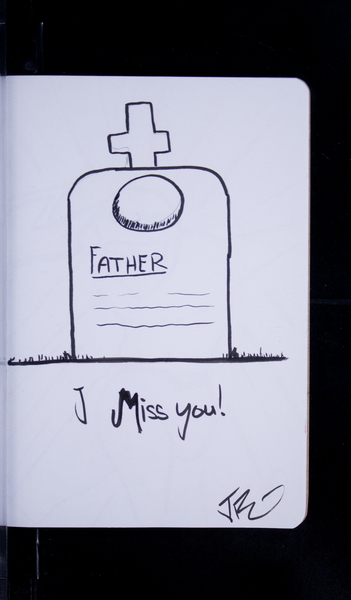 FATHER
I Miss you!